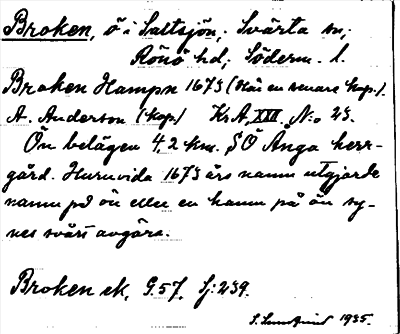 Broken, ö i Saltsjön, Svärta sn,
Rönö hd, Söderm. l.
Broken Hampn 1673 (Här en senare kop.).
A. Anderson (kop.) Kr.A, XXI. N:o 23.
Ön belägen 4,2 km. SÖ Ånga herr-
gård. Huruvida 1673 års namn utgjorde
namn på ön eller en hamn på ön sy-
nes svårt avgöra.
Broken ek. G.57. S:239.
S. 1935.